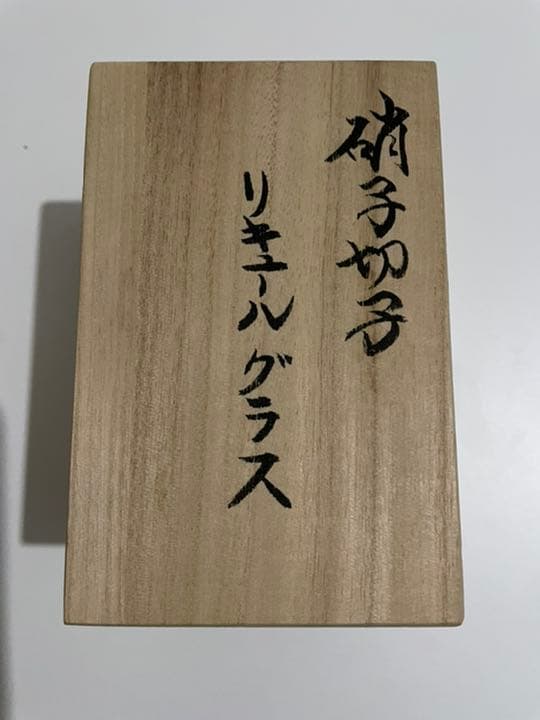 硝子切子
リキュールグラス